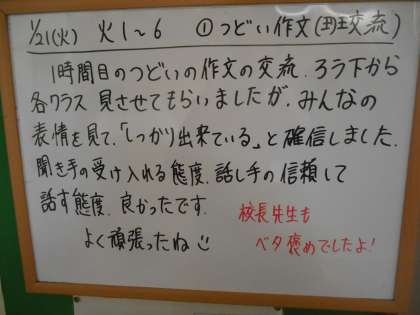 1/21(火) 火1～6 ①つどい作文(班交流)
1時間目のつどいの作文の交流.ろう下から
各クラス 見させてもらいましたが.みんなの
表情を見て.「しっかり出来ている」と確信しました.
聞き手の受け入れる態度.話し手の信頼して
話す態度.良かったです.
よく頑張ったね
校長先生も
ベタ褒めでしたよ!